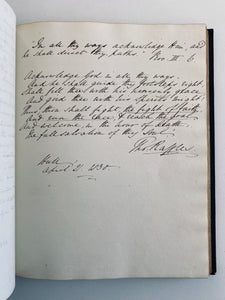 "In all thy ways acknowledge Him, and
he shall direct thy paths." Prov III. 6
Acknowledge God in all thy ways.
And he shall guide thy footsteps right,
Shall fill thee with his heavenly grace,
And gird thee with his Spirit's might;
thou shalt fight the fight of faith,
And run the race, & reach the goal
And welcome, in the hour of death
The full salvation of thy Soul.
Thos. Raffles
Hull
April 21. 1830.